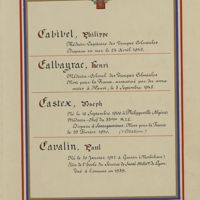 Cabibel, Philippe
Médecin-Capitaine des Troupes Coloniales
Disparu en mer le 23 Avril 1945.
Calbayrac, Henri
Médecin-Colonel des Troupes Coloniales
Mort pour la France, assassiné par des
à Hanoï, le 8 Septembre 1945.
Castex, Joseph
Né le 16 Septembre 1909 à Philippeville (Algérie)
Médecin-Chef du
Disparu à Mort pour la France
le 29 Février 1940. (Citation)
Cavalin, Paul
Né le 30 Janvier 1917 à Guern (Morbihan)
Élève de l'École du Service de Santé Milit. de Lyon
Tué à l'ennemi en 1939.